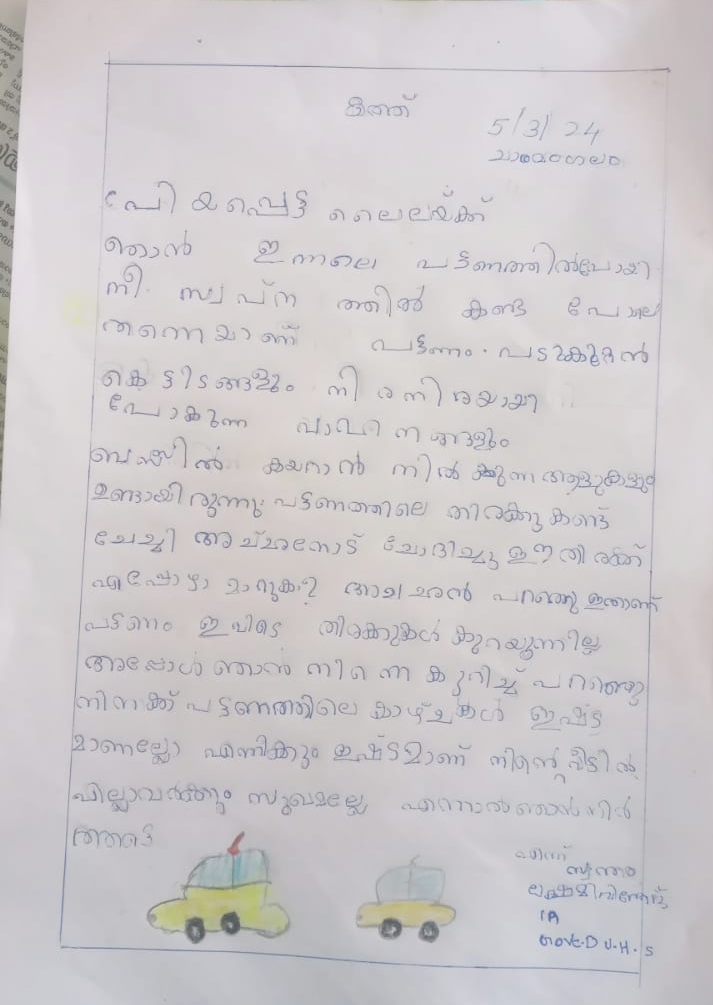 കത്ത്
5/3/24
ചാരമംഗലം
പ്രിയപ്പെട്ട ലൈലയ്ക്ക്
ഞാൻ ഇന്നലെ പട്ടണത്തിൽപോയി
നീ സ്വപ്നത്തിൽ കണ്ട പോലെ
തന്നെയാണ് പട്ടണം. പടുകൂറ്റൻ
കെട്ടിടങ്ങളും നിരനിരയായി
പോകുന്ന വാഹനങ്ങളും
ബസ്സിൽ കയറാൻ നിൽക്കുന്ന ആളുകളും
ഉണ്ടായിരുന്നു. പട്ടണത്തിലെ തിരക്കു കണ്ട്
ചേച്ചി അച്ഛനോട് ചോദിച്ചു ഈ തിരക്ക്
എപ്പോഴാ മാറുക? അച്ഛൻ പറഞ്ഞു ഇതാണ്
പട്ടണം ഇവിടെ തിരക്കുകൾ കുറയുന്നില്ല
അപ്പോൾ ഞാൻ നിന്നെ കുറിച്ച് പറഞ്ഞു
നിനക്ക് പട്ടണത്തിലെ കാഴ്ചകൾ ഇഷ്ട
മാണല്ലോ എനിക്കും ഇഷ്ടമാണ് നിന്റെ വീട്ടിൽ
എല്ലാവർക്കും സുഖമല്ലേ എന്നാൽ ഞാൻ നിർ
ത്തട്ടെ
എന്ന്
സ്വന്തം
ലക്ഷ്മി
1A
Govt.D V.H.S